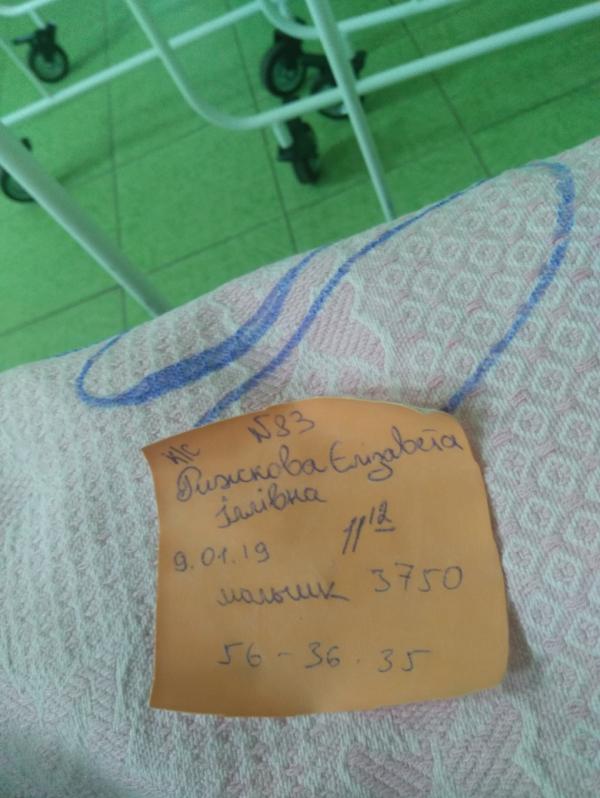 К/С N83
Рижскова Єлізавета
Іллівна
9.01.19 11 12
мальчик 3750
56 - 36 . 35